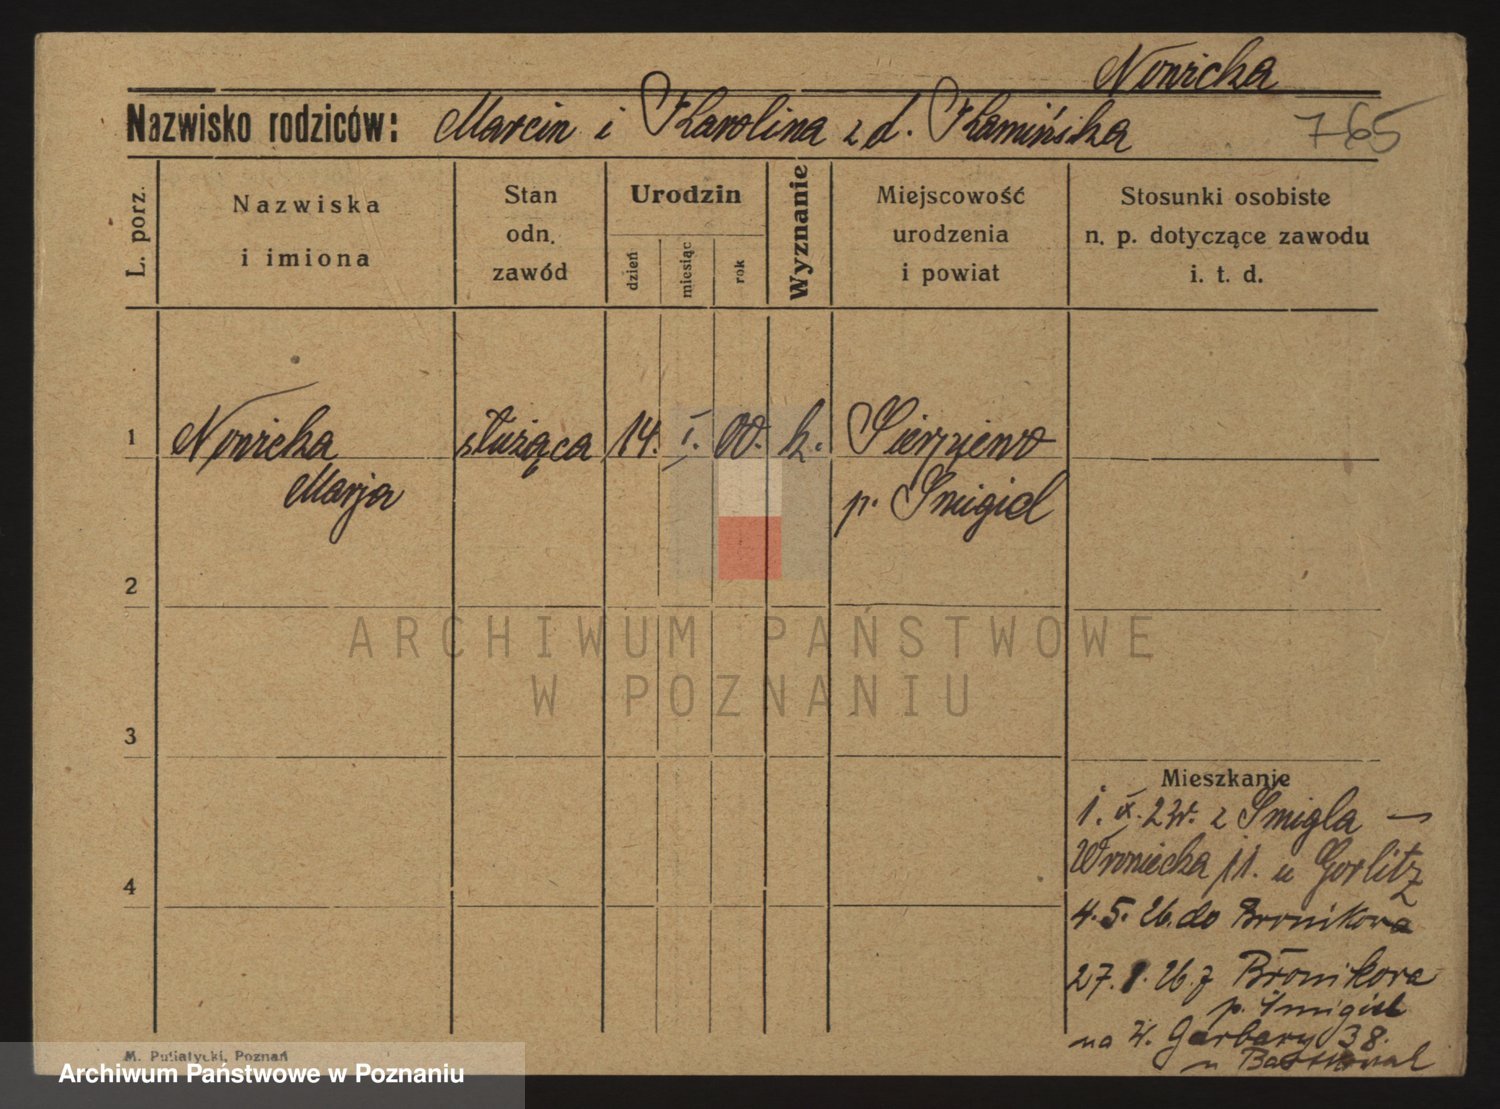 Nowicka
Nazwisko rodziców: Marcin i Karolina z d. Kamińska
765
L. porz.
Nazwiska
i imiona
Stan
odn.
zawód
Urodzin
dzień
miesiąc
rok
Wyznanie
Miejscowość
urodzenia
i powiat
Stosunki osobiste
n. p. dotyczące zawodu
i. t. d.
1
Nowicka
Marja
służąca
14. I. 00. k.
Sierpiewo
p. Śmigiel
2
3
4
Mieszkanie
z Śmigla —
Wroniecka 11. u Gorlitz
4.5.26. do Bronikowa
27. 26. z Bronikowa
p. Śmigiel
na W. Garbary 38.
u
M. Putiatycki, Poznań
ARCHIWUM PAŃSTWOWE
W POZNANIU
Archiwum Państwowe w Poznaniu